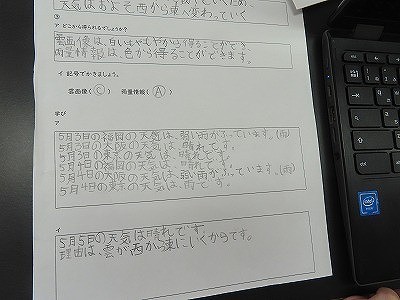 天気はおよそ西から東へ変わっていく
③
ア どこから得られるでしょうか?
雲画像は、白いもやもやから得ることができ、
雨量情報は、色から得ることができます。
イ 記号でかきましょう。
雲画像 ( C ) 雨量情報 ( A )
学び
ア
5月3日の福岡の天気は、弱い雨がふっています。(雨)
5月3日の大阪の天気は、晴れです。
5月3日の東京の天気は、晴れです。
5月4日の福岡の天気は、晴れです。
5月4日の大阪の天気は、弱い雨がふっています。(雨)
5月4日の東京の天気は、雨です。
イ
5月5日の天気は晴れです。
理由は、雲が西から東にいくからです。
intel